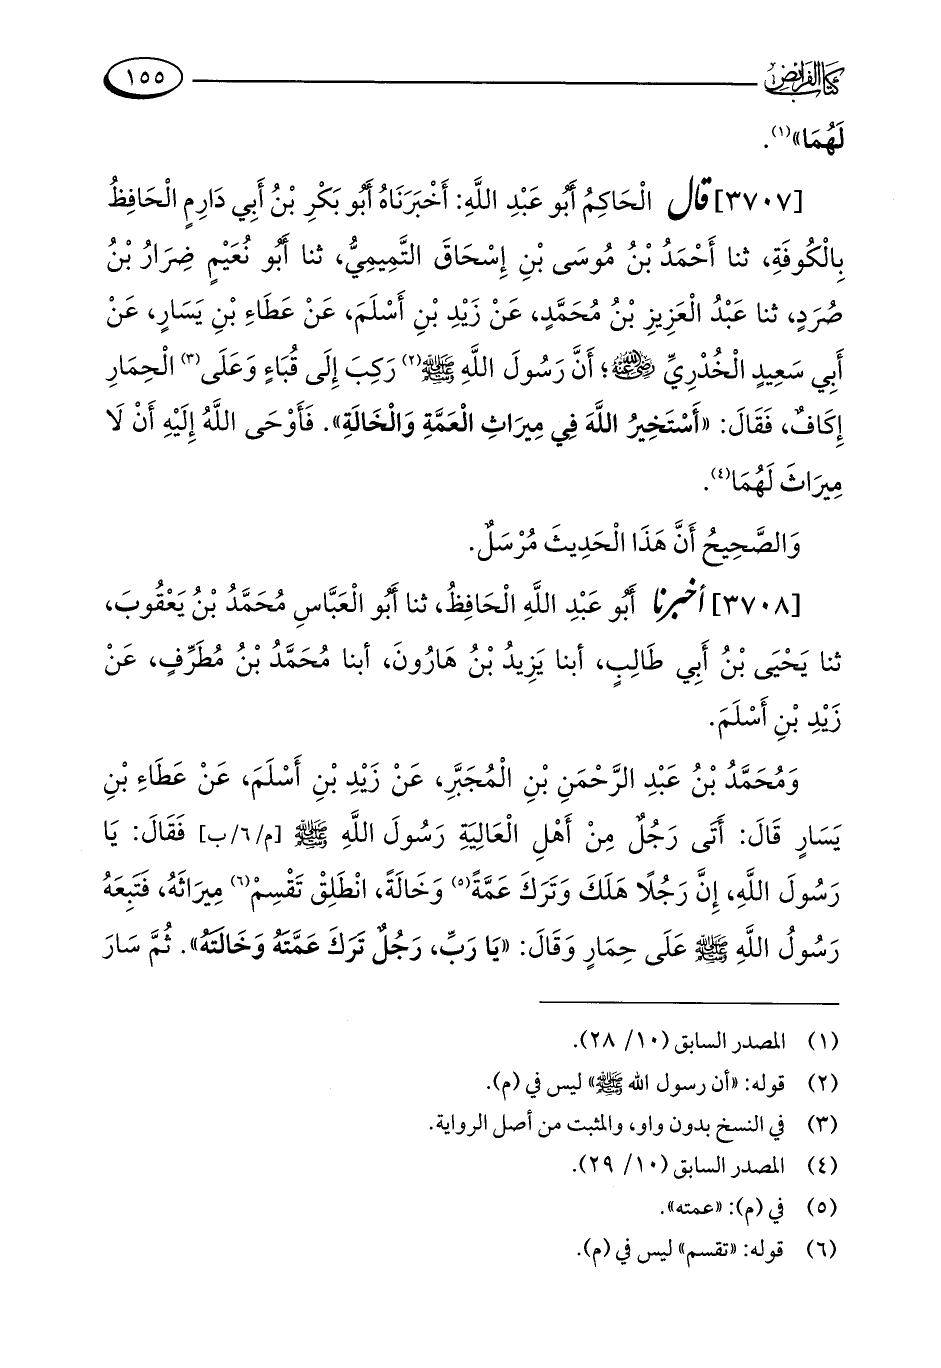 كتاب الفرائض ١٥٥
لَهُمَا»(١).
[٣٧٠٧] قال الْحَاكِمُ أَبُو عَبْدِ اللَّهِ: أَخْبَرَنَاهُ أَبُو بَكْرِ بْنُ أَبِي دَارِمٍ الْحَافِظُ
بِالْكُوفَةِ، ثنا أَحْمَدُ بْنُ مُوسَى بْنِ إِسْحَاقَ التَّمِيمِيُّ، ثنا أَبُو نُعَيْمٍ ضِرَارُ بْنُ
صُرَدٍ، ثنا عَبْدُ الْعَزِيزِ بْنُ مُحَمَّدٍ، عَنْ زَيْدِ بْنِ أَسْلَمَ، عَنْ عَطَاءِ بْنِ يَسَارٍ، عَنْ
أَبِي سَعِيدٍ الْخُدْرِيِّ رضي الله عنه؛ أَنَّ رَسُولَ اللَّهِ ﷺ(٢) رَكِبَ إِلَى قُبَاءٍ وَعَلَى(٣) الْحِمَارِ
إِكَافٌ، فَقَالَ: «أَسْتَخِيرُ اللَّهَ فِي مِيرَاثِ الْعَمَّةِ وَالْخَالَةِ». فَأَوْحَى اللَّهُ إِلَيْهِ أَنْ لَا
مِيرَاثَ لَهُمَا(٤).
وَالصَّحِيحُ أَنَّ هَذَا الْحَدِيثَ مُرْسَلٌ.
[٣٧٠٨] أخبرنا أَبُو عَبْدِ اللَّهِ الْحَافِظُ، ثنا أَبُو الْعَبَّاسِ مُحَمَّدُ بْنُ يَعْقُوبَ،
ثنا يَحْيَى بْنُ أَبِي طَالِبٍ، أبنا يَزِيدُ بْنُ هَارُونَ، أبنا مُحَمَّدُ بْنُ مُطَرِّفٍ، عَنْ
زَيْدِ بْنِ أَسْلَمَ.
وَمُحَمَّدُ بْنُ عَبْدِ الرَّحْمَنِ بْنِ الْمُجَبَّرِ، عَنْ زَيْدِ بْنِ أَسْلَمَ، عَنْ عَطَاءِ بْنِ
يَسَارٍ قَالَ: أَتَى رَجُلٌ مِنْ أَهْلِ الْعَالِيَةِ رَسُولَ اللَّهِ ﷺ [م/٦/ب] فَقَالَ: يَا
رَسُولَ اللَّهِ، إِنَّ رَجُلًا هَلَكَ وَتَرَكَ عَمَّةً(٥) وَخَالَةً، انْطَلِقْ تَقْسِمْ(٦) مِيرَاثَهُ، فَتَبِعَهُ
رَسُولُ اللَّهِ ﷺ عَلَى حِمَارٍ وَقَالَ: «يَا رَبِّ، رَجُلٌ تَرَكَ عَمَّتَهُ وَخَالَتَهُ». ثُمَّ سَارَ
(١) المصدر السابق (١٠/ ٢٨).
(٢) قوله: «أن رسول الله ﷺ» ليس في (م).
(٣) في النسخ بدون واو، والمثبت من أصل الرواية.
(٤) المصدر السابق (١٠/ ٢٩).
(٥) في (م): «عمته».
(٦) قوله: «تقسم» ليس في (م).